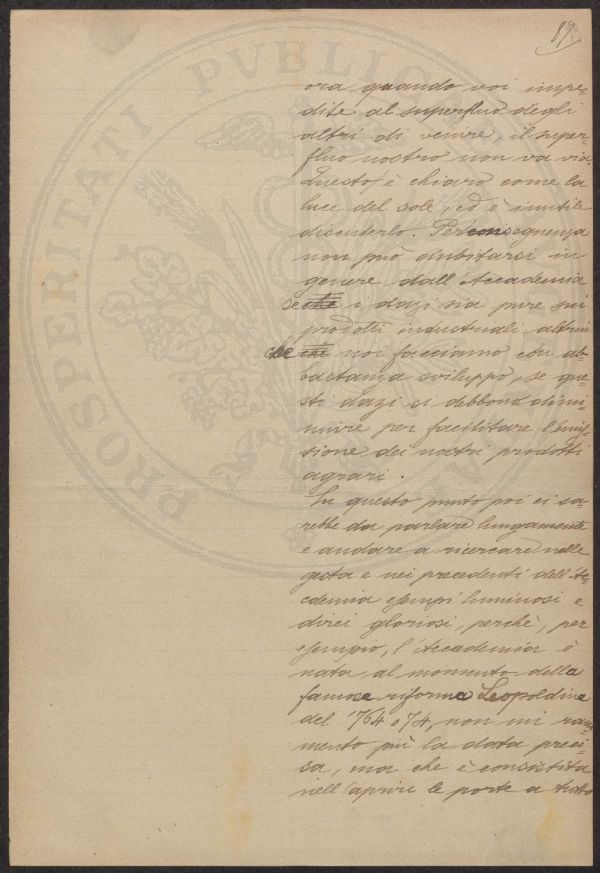 87
ora quando voi impe-
dite al superfluo degli
altri di venire, il super-
fluo nostro non va via.
Questo è chiaro come la
luce del sole, ed è inutile
discuterlo. Per conseguenza
non può dubitarsi in
genere dall'Accademia
se che i dazi sia pure sui
prodotti industriali altrui
che che noi facciamo con ab-
bastanza sviluppo, se que-
sti dazi si debbono dimi-
nuire per facilitare l'emis-
sione dei nostri prodotti
agrari.
In questo punto poi ci sa-
rebbe da parlare lungamente
e andare a ricercare nelle
gesta e nei precedenti dell'Ac-
cademia esempi luminosi e
direi gloriosi, perchè, per
esempio, l'Accademia è
nata al momento della
famosa riforma Leopoldina
del '764 o 74, non mi ram-
mento più la data preci-
sa, ma che è consistita
nell'aprire le porte a tutto
PROSPERITATI PVBLICAE